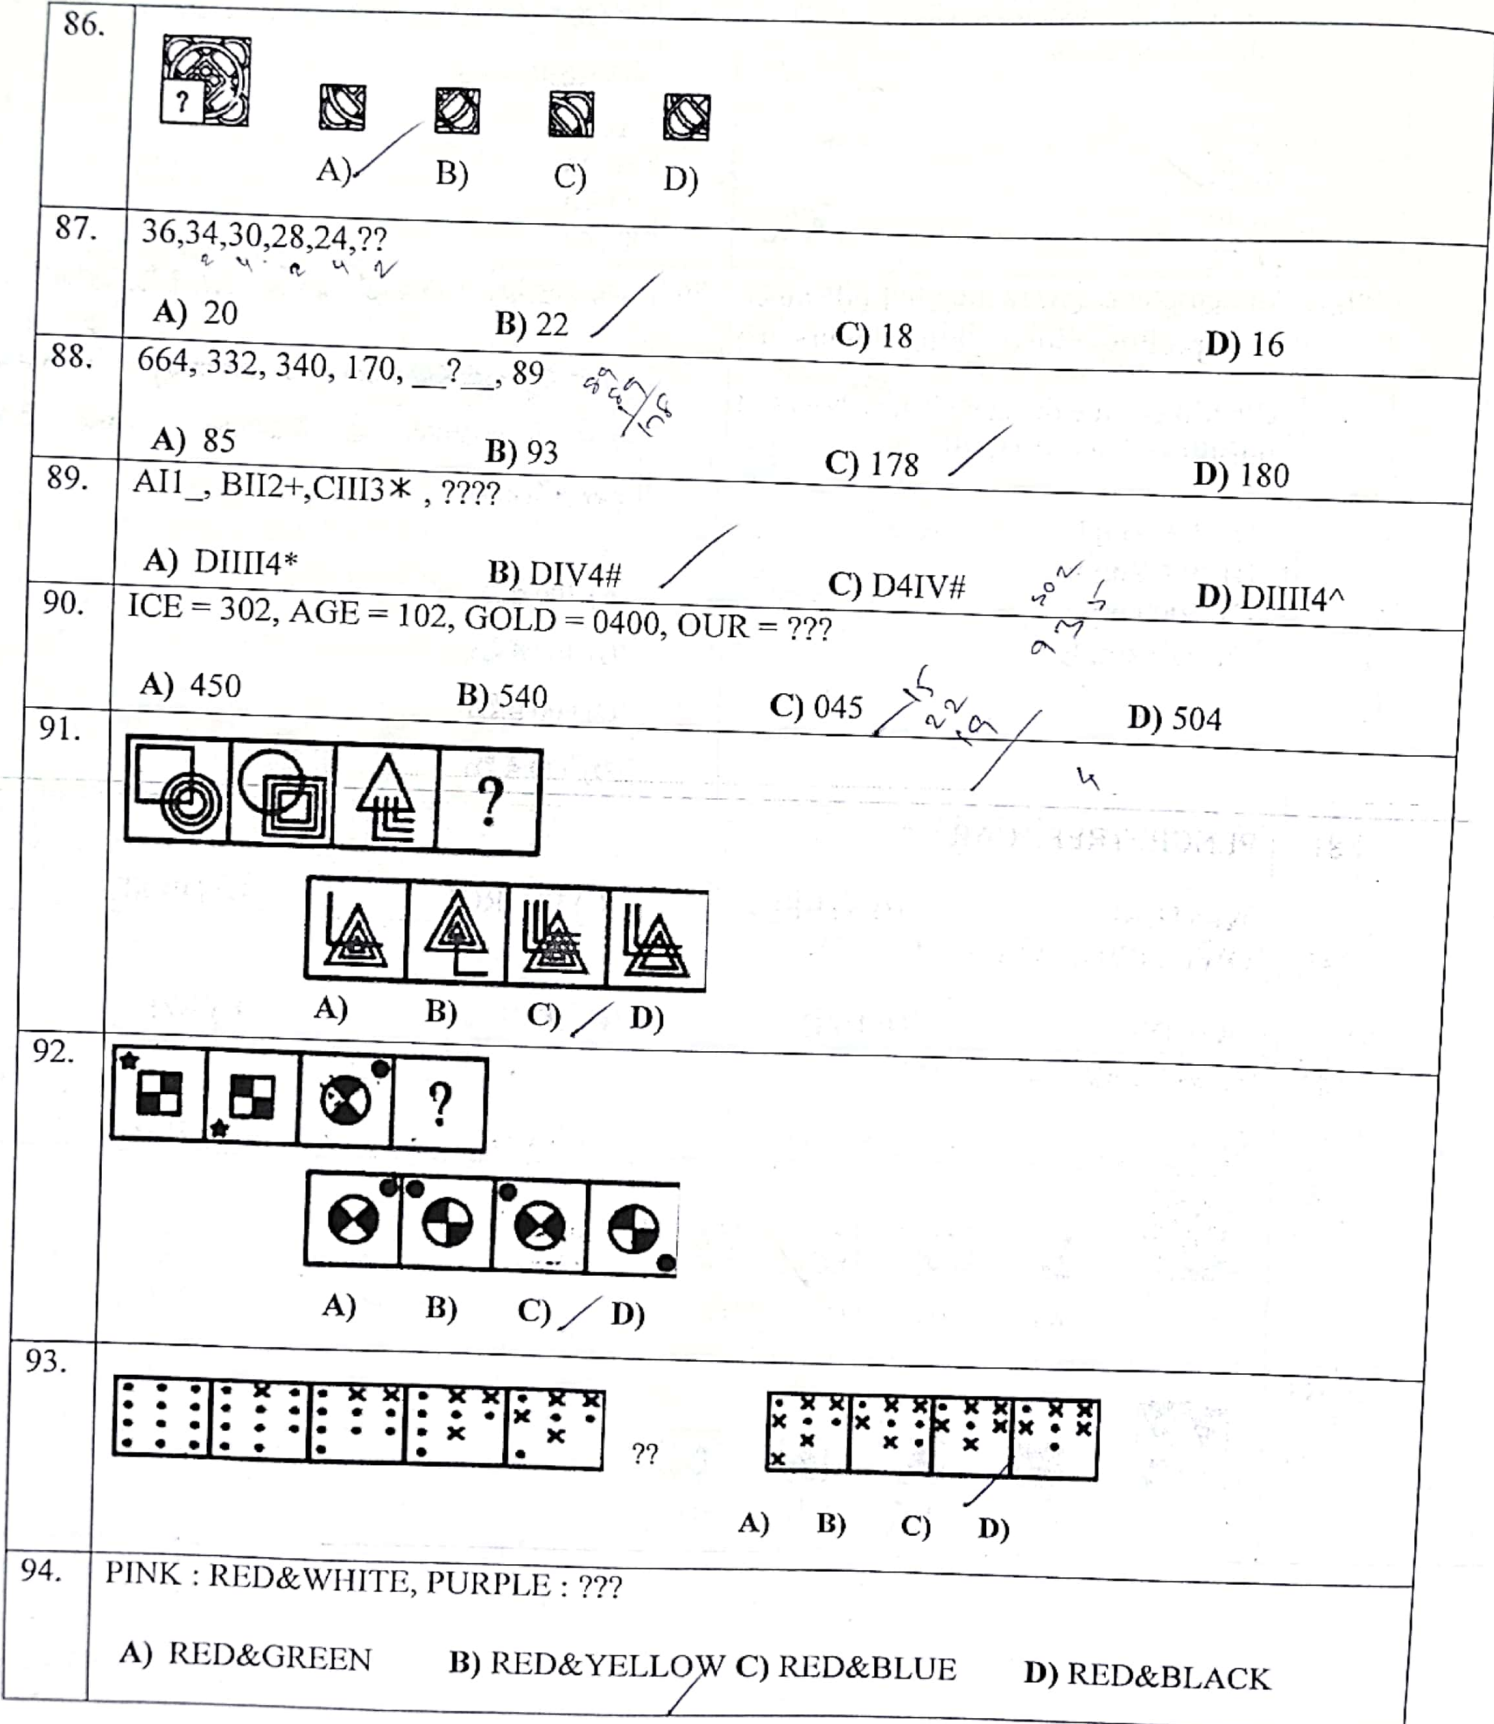 86.
?
A) B) C) D)
87. 36,34,30,28,24,??
2 4 2 4 2
A) 20 B) 22 C) 18 D) 16
88. 664, 332, 340, 170, __?__, 89
A) 85 B) 93 C) 178 D) 180
89. AI1_, BII2+,CIII3* , ????
A) DIIII4* B) DIV4# C) D4IV# D) DIIII4^
90. ICE = 302, AGE = 102, GOLD = 0400, OUR = ???
A) 450 B) 540 C) 045 D) 504
91.
?
A) B) C) D)
92.
?
A) B) C) D)
93.
??
A) B) C) D)
94. PINK : RED&WHITE, PURPLE : ???
A) RED&GREEN B) RED&YELLOW C) RED&BLUE D) RED&BLACK